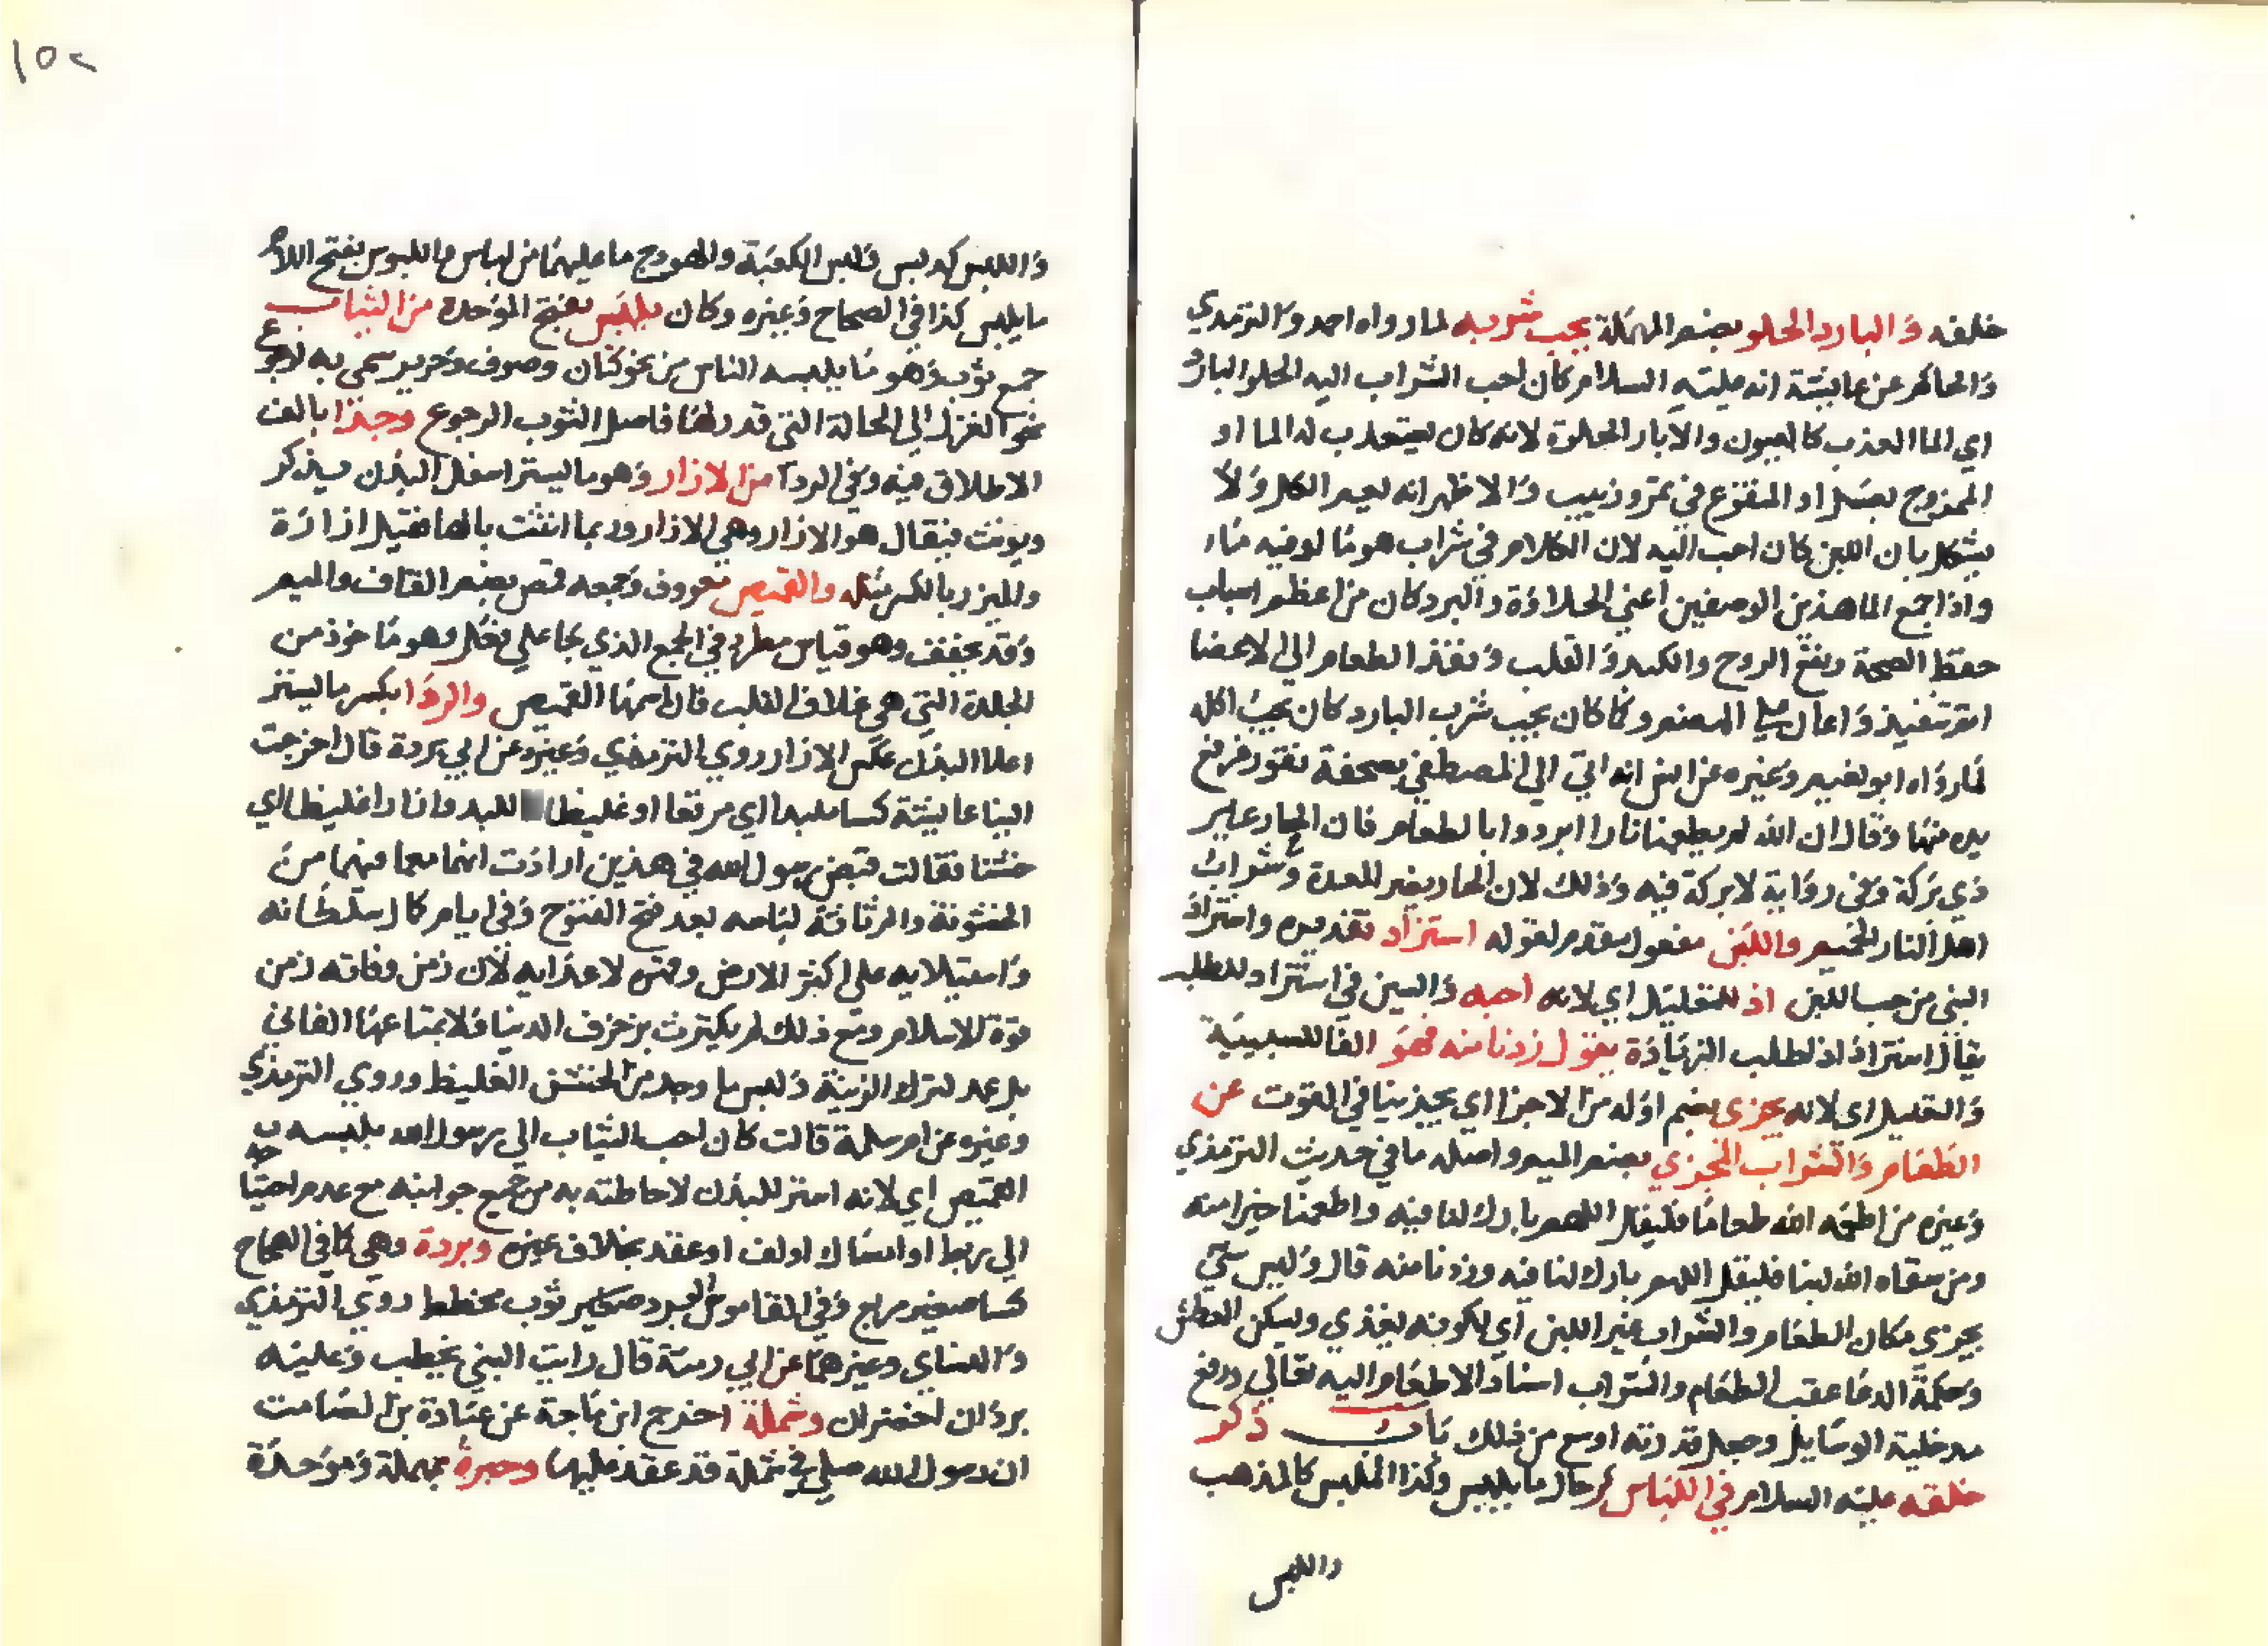 خلفه والبارد الحلو بضم المهملة يجب شربه لما رواه احمد والترمذي
والحاكم عن عايشة انه عليه السلام كان احب الشراب اليه الحلو البارد
اي الما العذب كالعيون والآبار الحلوة لانه كان يستعذب له الما او
الممزوج بعسل او المنقوع في تمر وزبيب والاظهر انه يعم الكل ولا
يشكل بان اللبن كان احب اليه لان الكلام في شراب هو ما او فيه ما
واذا جمع الما هذين الوصفين اعني الحلاوة والبرد كان من اعظم اسباب
حفظ الصحة ونفع الروح والكبد والقلب ونفذ الطعام الي الاعضا
اتم تنفيذ واعان علي الهضم وكما كان يجب شرب البارد كان يجب اكله
لما رواه ابو نعيم وغيره عن انس انه اتي الي المصطفي بصحفة تفور فرفع
يده منها وقال ان الله لم يطعمنا نارا ابردوا بالطعام فان الحار غير
ذي بركة وفي رواية لا بركة فيه وذلك لان الحار يضر المعدة وشراب
اهل النار الحميم واللبن مفعول مقدم لقوله استزاد تقديره واستزاد
النبي من حب اللبن اذ للتعليل اي لانه احبه والسين في استزاد للطلب
يقال استزاد اذا طلب الزيادة بقول زدنا منه فهو الفا للسببية
والتعليل اي لانه يجزي بضم اوله من الاجزا اي يجزينا في القوت عن
الطعام والشراب المجزي بضم الميم واصله ما في حديث الترمذي
وغيره من اطعمه الله طعاما فليقل اللهم بارك لنا فيه واطعمنا خيرا منه
ومن سقاه الله لبنا فليقل اللهم بارك لنا فيه وزدنا منه قال وليس شي
يجزي مكان الطعام والشراب غير اللبن اي لكونه يغذي ويسكن العطش
وحكمة الدعا عقب الطعام والشراب اسناد الاطعام اليه تعالي ورفع
مدخلية الوسايل وجعل قدرته اوسع من ذلك باب ذكر
خلقه عليه السلام في اللباس حال ما يلبس وكذا الملبس كالمذهب
واللبس
١٥٢
واللبس كد بس ولبس الكعبة والهودج ما عليهما من لباس واللبوس بفتح اللام
ما يلبس كذا في الصحاح وغيره وكان يلبس بفتح الموحدة من الثياب
جمع ثوب وهو ما يلبسه الناس من نحو كتان وصوف وحرير سمي به لرجوع
نحو الغزل الي الحالة التي قدر لها فاصل الثوب الرجوع وجذا بالف
الاطلاق فيه وفي الردا من الازار وهو ما يستر اسفل البدن ويذكر
ويونث فيقال هو الازار وهي الازار وربما انثت بالها فقيل ازارة
والميزر بالكسر مثله والقميص معروف وجمعه قمص بضم القاف والميم
وقد يخفف وهو قياس مطرد في الجمع الذي جا علي فعل وهو ماخوذ من
الجلدة التي هي غلاف القلب فان اسمها القميص والردا بكسر ما يستر
اعلا البدن عكس الازار روي الترمذي وغيره عن ابي بردة قال اخرجت
الينا عايشة كسا ملبدا اي مرقعا او غليظا للبد وازارا غليظا اي
خشنا فقالت قبض رسول الله في هذين ارادت انهما معما فيهما من
الخشونة والرثاثة لباسه بعد فتح الفتوح وفي ايام كمال سلطانه
واستيلايه علي اكثر الارض وقهره لاعدايه لان زمن وفاته زمن
قوة للاسلام ومع ذلك لم يكترث بزخرف الدنيا ولا بمتاعها الفاني
بل عمد لترك الزينة ولبس ما وجد من الخشن الغليظ وروي الترمذي
وغيره عن ام سلمة قالت كان احب الثياب الي رسول الله يلبسه
القميص اي لانه استر للبدن لاحاطته به من جميع جوانبه مع عدم احتياجه
الي ربط او امساك او لف او عقد بخلاف غيره وبردة وهي كما في الصحاح
كسا صغير مربع وفي القاموس البرد صغير ثوب مخطط روي الترمذي
والنساي وغيرهما عن ابي رمثة قال رايت النبي يخطب وعليه
بردان اخضران وشملة اخرج ابن ماجة عن عبادة بن الصامت
ان رسول الله صلي في شملة قد عقد عليها وحبرة بمهملة وموحدة